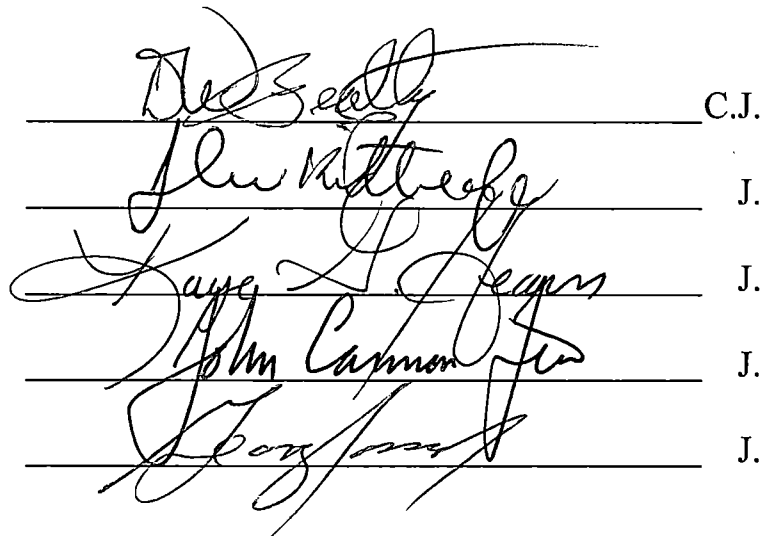 Beatty C.J.
John Kittredge J.
Kaye G. Hearn J.
John Cannon Few J.
George J.